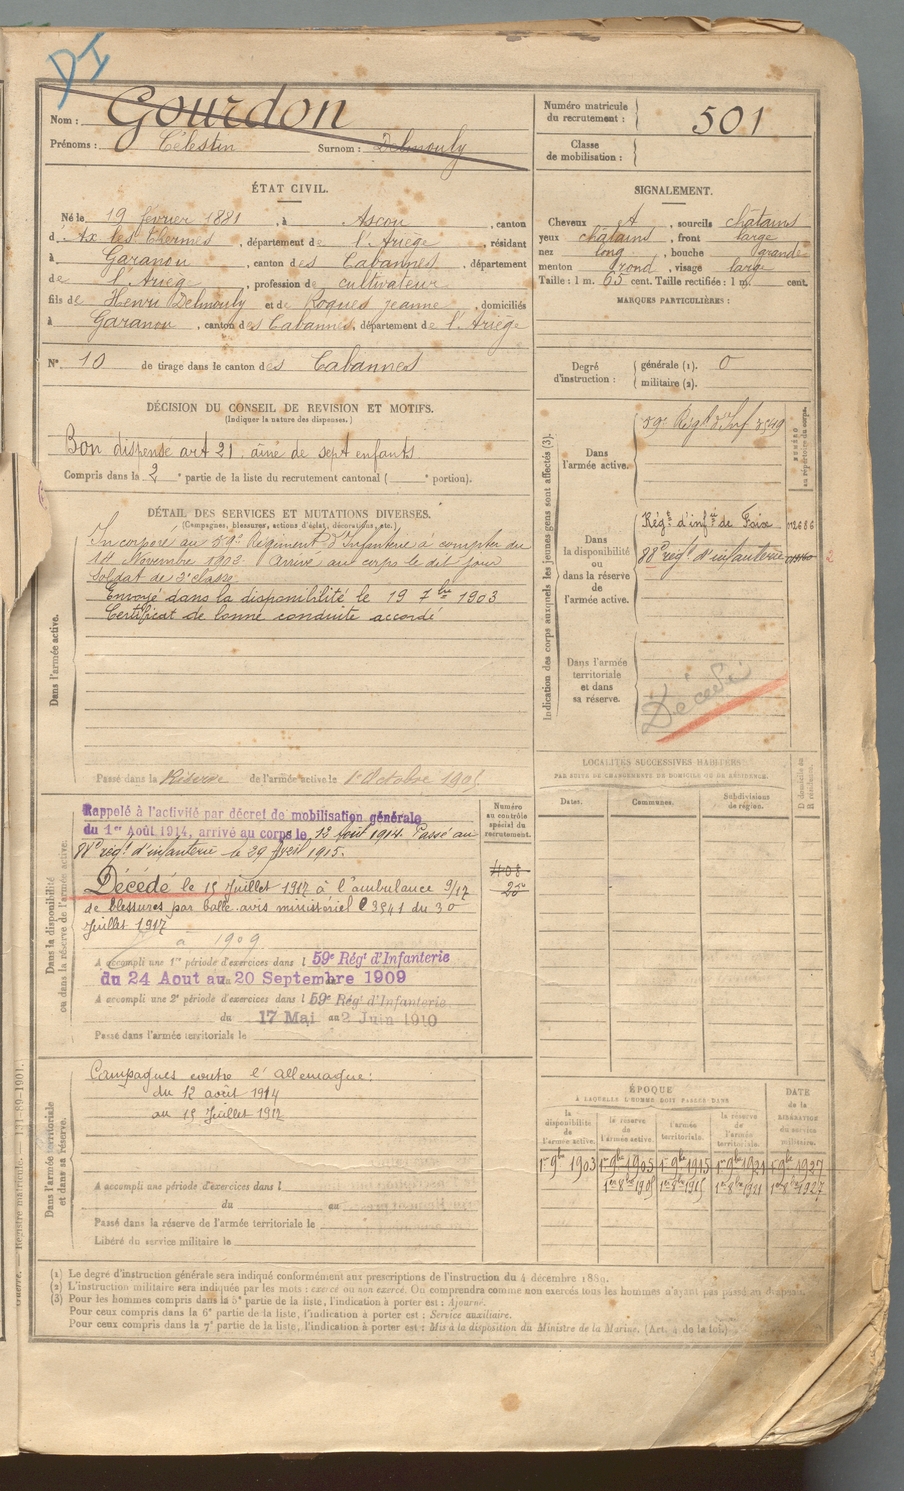 DI
Nom : Gourdon
Prénoms : Célestin Surnom : Delmouly
Numéro matricule du recrutement : 501
Classe de mobilisation :
ÉTAT CIVIL.
Né le 19 février 1881, à Ascou, canton
d'Ax les Thermes, département de l'Ariège, résidant
à Garanou, canton des Cabannes, département
de l'Ariège, profession de cultivateur
fils de Henri Delmouly et de Roques Jeanne, domiciliés
à Garanou, canton des Cabannes, département de l'Ariège
N° 10 de tirage dans le canton des Cabannes
SIGNALEMENT.
Cheveux et, sourcils châtains
yeux châtains, front large
nez long, bouche grande
menton rond, visage large
Taille : 1 m. 65 cent. Taille rectifiée : 1 m. cent.
MARQUES PARTICULIÈRES :
Degré d'instruction : générale (1). 0
militaire (2).
DÉCISION DU CONSEIL DE REVISION ET MOTIFS.
(Indiquer la nature des dispenses.)
Bon dispensé art 21. aîné de sept enfants
Compris dans la 2e partie de la liste du recrutement cantonal ( e portion).
DÉTAIL DES SERVICES ET MUTATIONS DIVERSES.
(Campagnes, blessures, actions d'éclat, décorations, etc.)
Dans l'armée active.
Incorporé au 59e Régiment d'Infanterie à compter du
14 Novembre 1902. Arrivé au corps le dit jour
soldat de 2e classe.
Envoyé dans la disponibilité le 19 7bre 1903
Certificat de bonne conduite accordé
Passé dans la Réserve de l'armée active le 1er Octobre 1905
Indication des corps auxquels les jeunes gens sont affectés (3).
NUMÉRO au répertoire du corps.
Dans l'armée active.
59e Régt d'Inf
Dans la disponibilité ou dans la réserve de l'armée active.
Régt d'infie de Foix
88e régt d'infanterie
Dans l'armée territoriale et dans sa réserve.
Décédé
LOCALITÉS SUCCESSIVES HABITÉES
PAR SUITE DE CHANGEMENTS DE DOMICILE OU DE RÉSIDENCE.
Dates. Communes. Subdivisions de région. D domicile ou R résidence.
Dans la disponibilité ou dans la réserve de l'armée active.
Numéro au contrôle spécial du recrutement.
Rappelé à l'activité par décret de mobilisation générale
du 1er Août 1914, arrivé au corps le 12 Août 1914. Passé au
88e régt d'infanterie le 29 Avril 1915.
408
Décédé le 15 Juillet 1917 à l'ambulance 9/17
de blessures par balle. avis ministériel 3941 du 30
Juillet 1917
a 1909
A accompli une 1re période d'exercices dans l 59e Régt d'Infanterie
du 24 Aout au 20 Septembre 1909
A accompli une 2e période d'exercices dans l 59e Régt d'Infanterie
du 17 Mai au 2 Juin 1910
Passé dans l'armée territoriale le
Dans l'armée territoriale et dans sa réserve.
Campagnes contre l'Allemagne :
du 12 août 1914
au 15 Juillet 1917
A accompli une période d'exercices dans l
du au
Passé dans la réserve de l'armée territoriale le
Libéré du service militaire le
ÉPOQUE
À LAQUELLE L'HOMME DOIT PASSER DANS
DATE de la LIBÉRATION du service militaire.
la disponibilité de l'armée active. la réserve de l'armée active. l'armée territoriale. la réserve de l'armée territoriale.
1er 9bre 1903 1er 9bre 1905 1er 9bre 1915 1er 9bre 1921 1er 9bre 1927
1er 8bre 1905 1er 8bre 1915 1er 8bre 1921 1er 8bre 1927
Guerre. — Registre matricule. — 131-89-1901.
(1) Le degré d'instruction générale sera indiqué conformément aux prescriptions de l'instruction du 4 décembre 1889.
(2) L'instruction militaire sera indiquée par les mots : exercé ou non exercé. On comprendra comme non exercés tous les hommes n'ayant pas passé au drapeau.
(3) Pour les hommes compris dans la 5e partie de la liste, l'indication à porter est : Ajourné.
Pour ceux compris dans la 6e partie de la liste, l'indication à porter est : Service auxiliaire.
Pour ceux compris dans la 7e partie de la liste, l'indication à porter est : Mis à la disposition du Ministre de la Marine. (Art. 4 de la loi.)